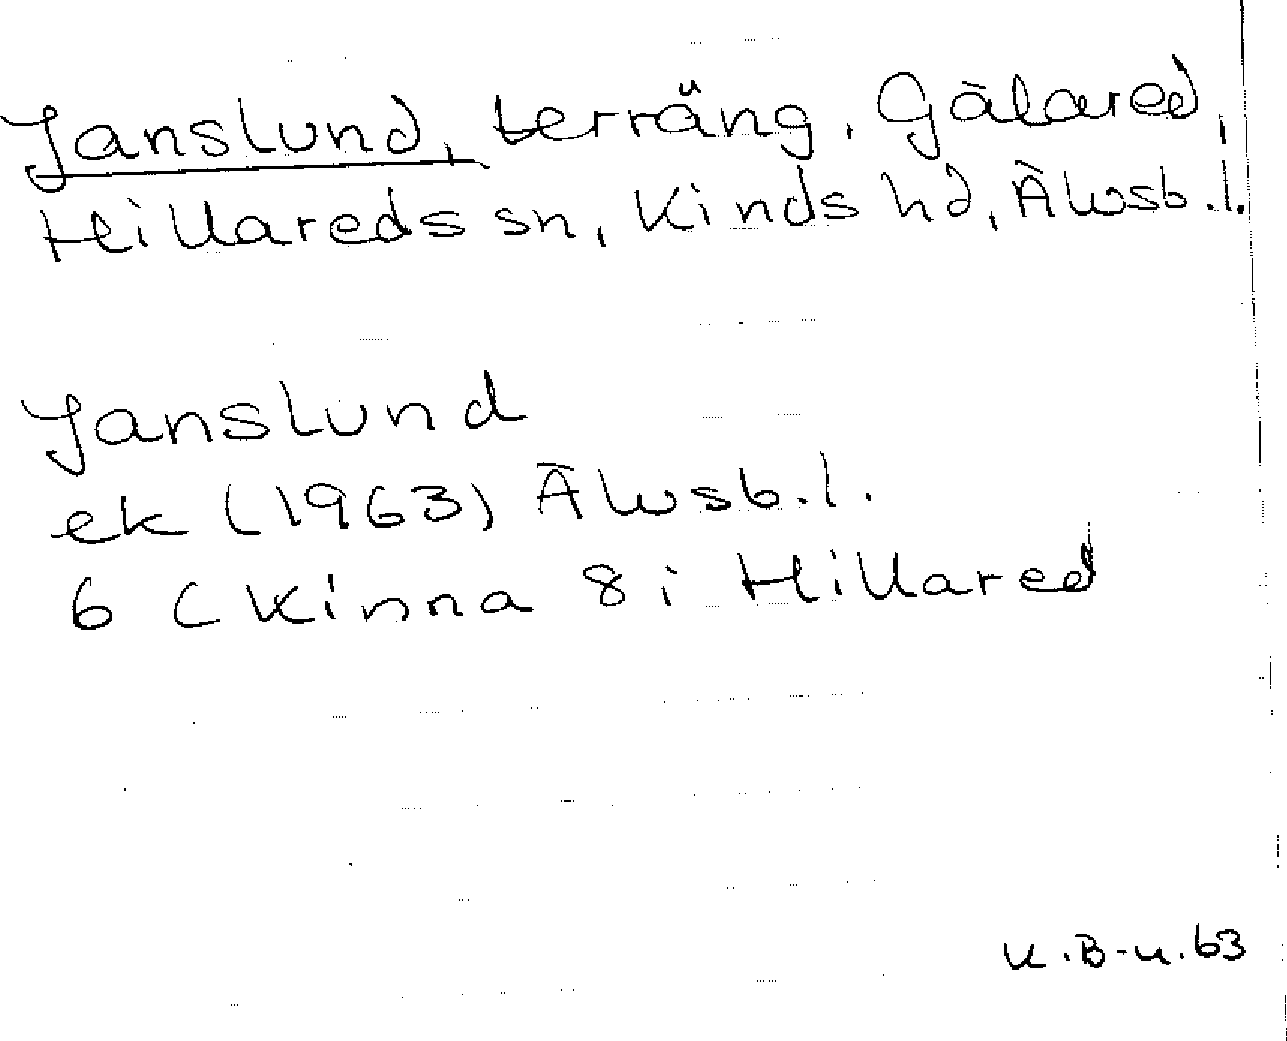 Janslund, terräng, Gälared,
Hillareds sn, Kinds hd, Älvsb.l.
Janslund
ek (1963) Älvsb.l.
6 C Kinna 8 i Hillared
K.B-n.63